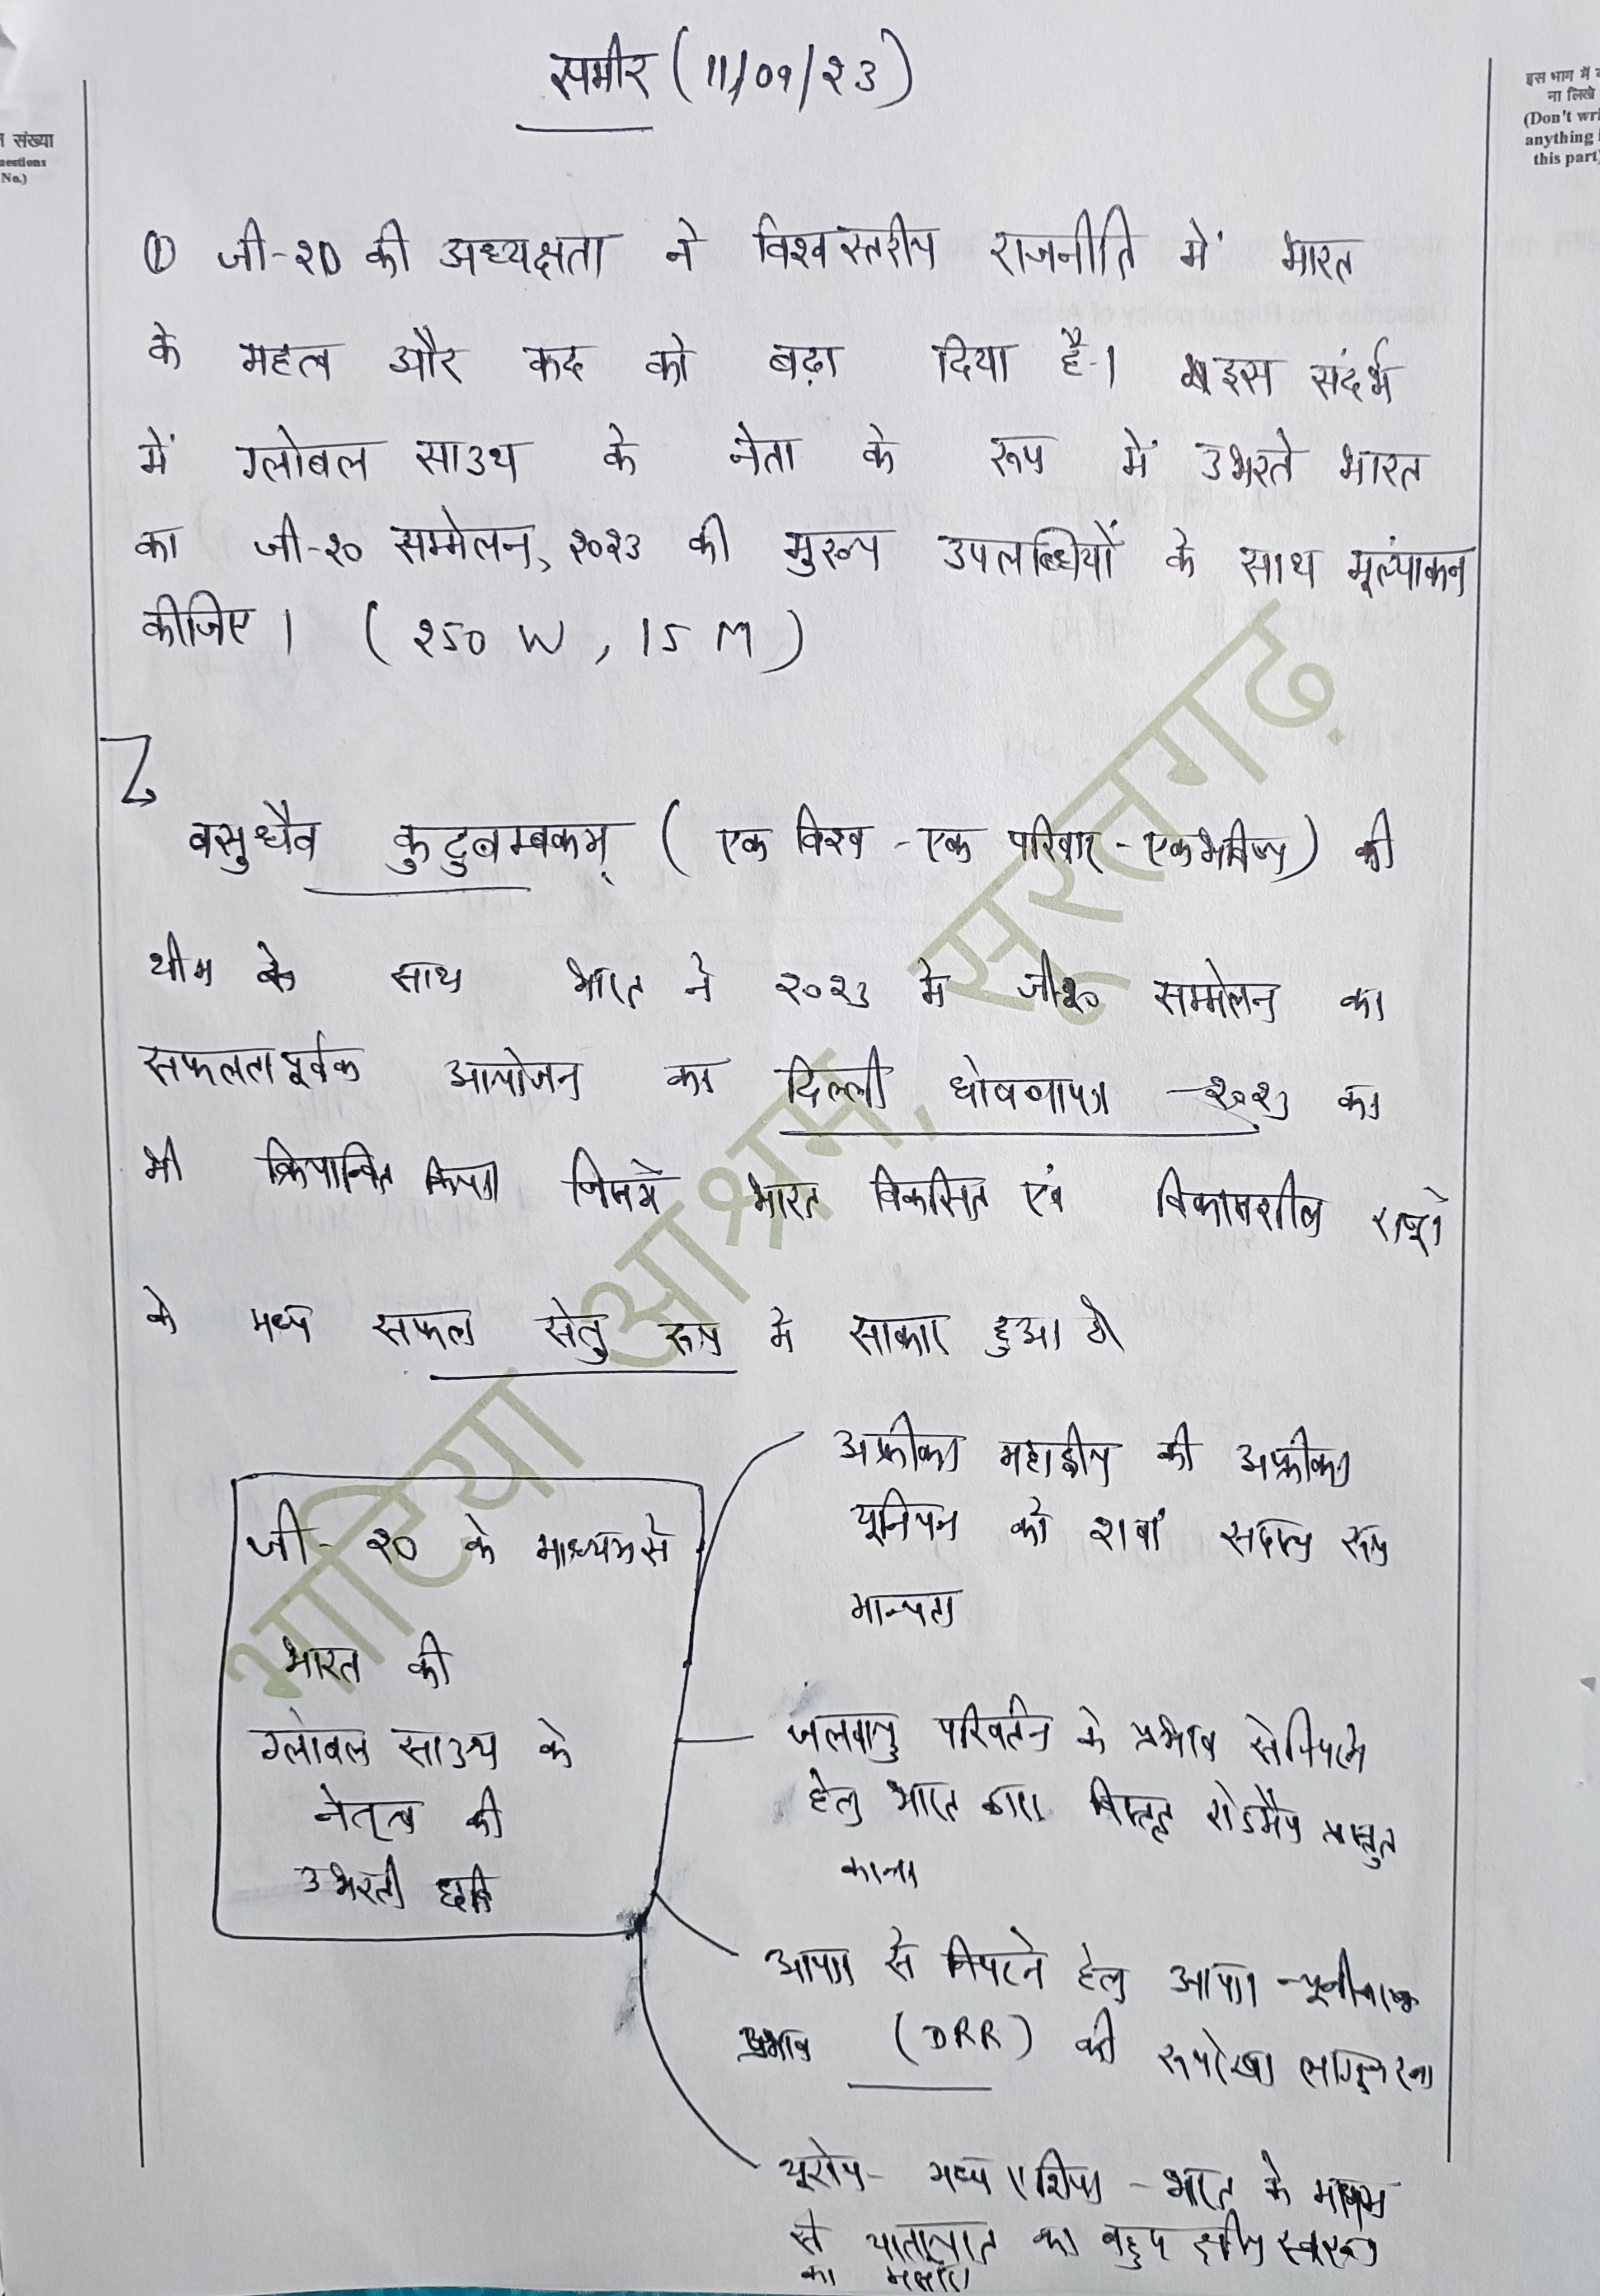 समीर (11/09/२3)
न संख्या
uestions
No.)
इस भाग में
ना लिखे
(Don't wri
anything i
this part)
① जी-२० की अध्यक्षता ने विश्वस्तरीय राजनीति में भारत
के महत्व और कद को बढ़ा दिया है। इस संदर्भ
में ग्लोबल साउथ के नेता के रूप में उभरते भारत
का जी-२० सम्मेलन, २०२३ की मुख्य उपलब्धियों के साथ मूल्यांकन
कीजिए। (२50 W, 15 M)
वसुधैव कुटुबम्बकम् (एक विश्व - एक परिवार - एक भविष्य) की
थीम के साथ भारत ने २०२३ मे जी-२० सम्मेलन का
सफलतापूर्वक आयोजन कर दिल्ली घोषणापत्र - २०२३ का
भी क्रियान्वित किया जिसमे भारत विकसित एवं विकासशील राष्ट्रो
के मध्य सफल सेतु रूप मे साकार हुआ है
जी-२० के माध्यम से
भारत की
ग्लोबल साउथ के
नेतृत्व की
उभरती छवि
अफ्रीका महाद्वीप की अफ्रीका
यूनियन को २१वां सदस्य रूप
मान्यता
जलवायु परिवर्तन के प्रभाव से निपटने
हेतु भारत द्वारा विस्तृत रोडमैप प्रस्तुत
करना
आपदा से निपटने हेतु आपदा न्यूनीकरण
प्रभाव (DRR) की रूपरेखा
यूरोप - मध्य एशिया - भारत के माध्यम
से यातायात का बहुपक्षीय स्वरूप
का
भाटिया आश्रम, सूरतगढ़